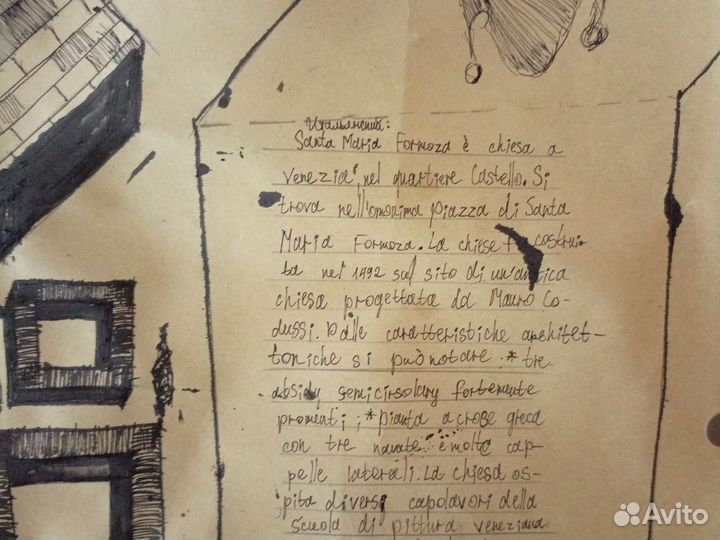 Итальянский:
Santa Maria Formoza è chiesa a
venezia, nel quartiere Castello. Si
trova nell'omonima piazza di Santa
Maria Formoza. La chiese fu costrui-
ta nel 1492 sul sito di un'antica
chiesa progettata da Mauro Co-
dussi. Dalle caratteristiche architet-
toniche si può notare: * tre
absidy semicirsolary fortemente
promenti; * pianta a crose greca
con tre navate e molte cap-
pelle laterali. La chiesa os-
pita diversi capolavori della
scuola di pittura veneziana.
Avito